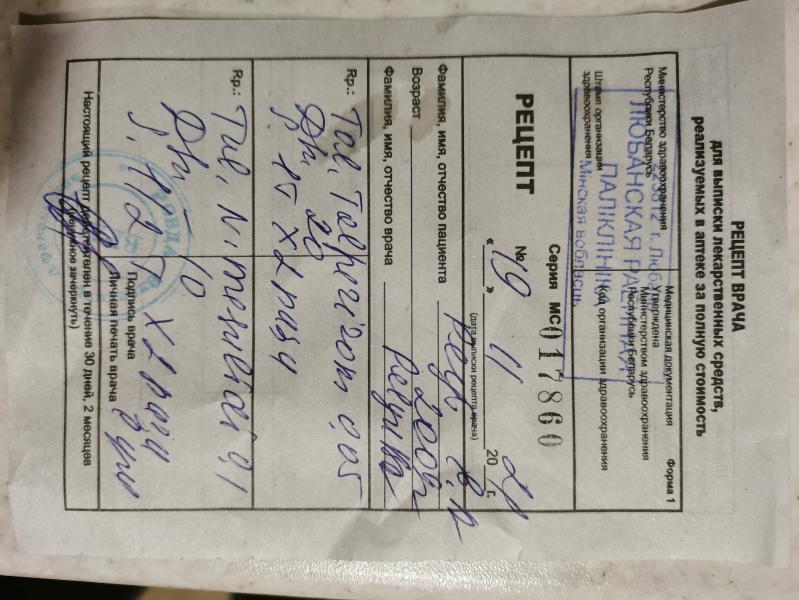 РЕЦЕПТ ВРАЧА
для выписки лекарственных средств,
реализуемых в аптеке за полную стоимость
Форма 1
Министерство здравоохранения
Республики Беларусь
Медицинская документация
Утверждена
Министерством здравоохранения
Республики Беларусь
Штамп организации
здравоохранения
Код организации здравоохранения
223812 г. Люб
ЛЮБАНСКАЯ РА
ПАЛІКЛІНІКА
Мінская вобласць
РЕЦЕПТ
Серия МС 017860
№
« 19 » 11 20 21 г.
(дата выписки рецепта врача)
Фамилия, имя, отчество пациента
Возраст 2009
Фамилия, имя, отчество врача
Rp.: Tab. Tolperizon 0,05
20
S. 1T x 2 разу
Rp.: Tab. Nimesulidi 0,1
10
S. 1/2 T x 2 разу
Подпись врача
Личная печать врача
Настоящий рецепт действителен в течение 30 дней, 2 месяцев
(ненужное зачеркнуть)